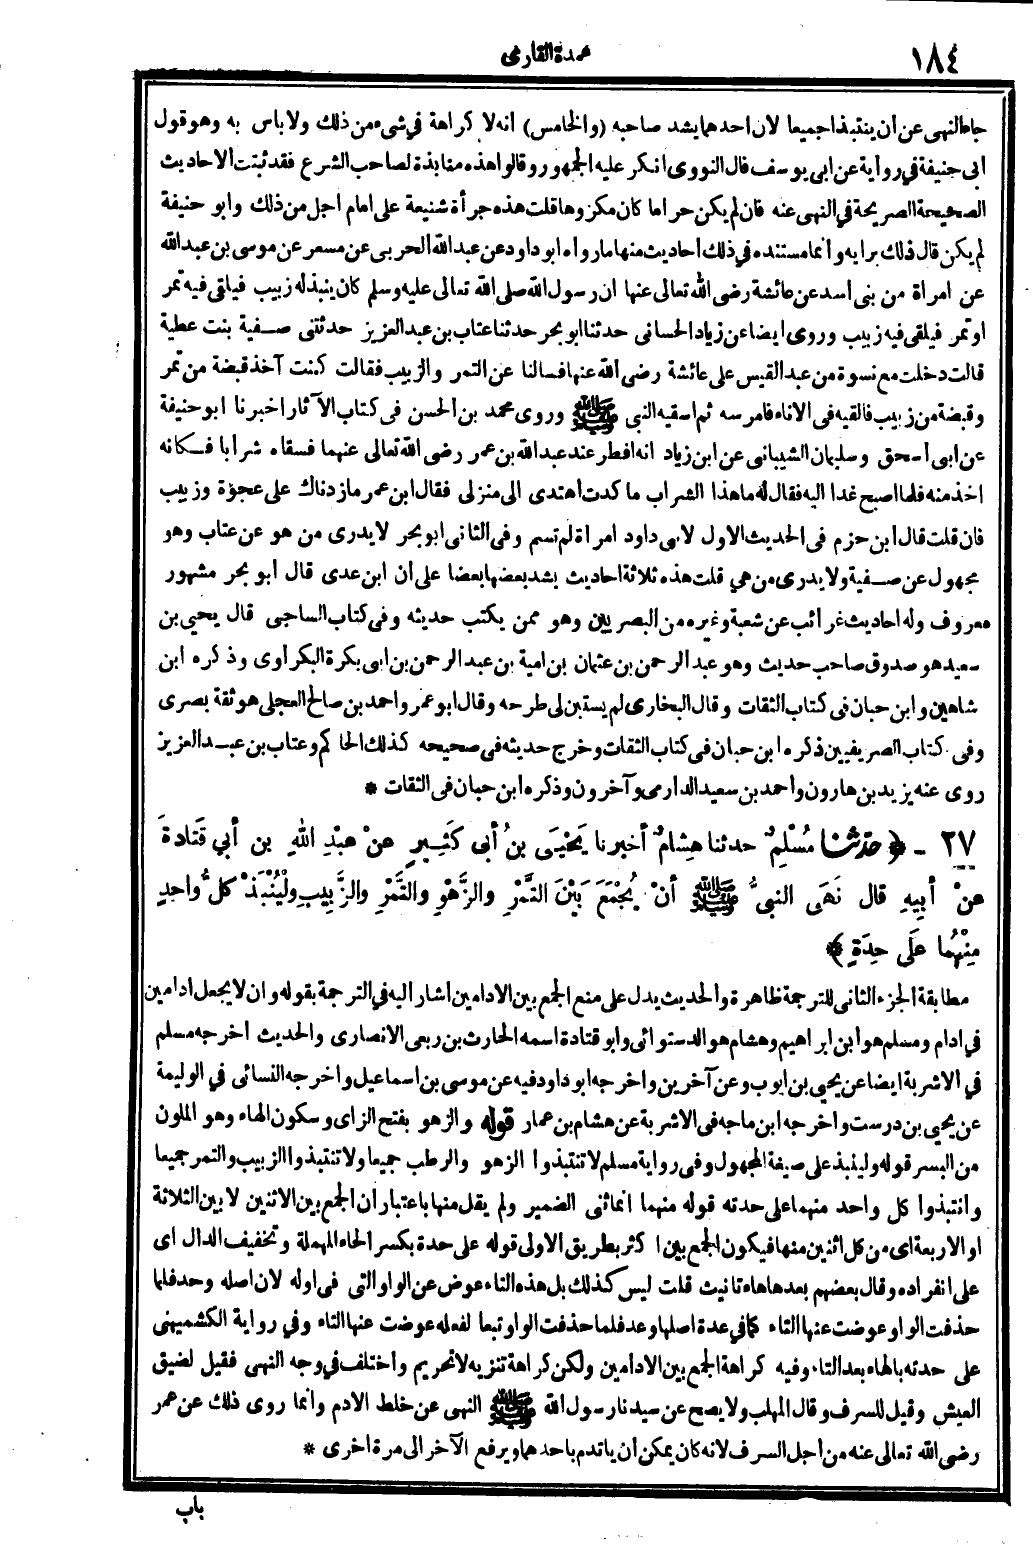 ١٨٤
عمدة القارى
جاء النهى عن أن ينتبذا جميعا لان احدهما يشد صاحبه (والخامس) انه لا كراهة في شىء من ذلك ولا باس به وهو قول
أبى حنيفة في رواية عن ابى يوسف قال النووى انكر عليه الجمهور وقالوا هذه منابذة لصاحب الشرع فقد ثبتت الاحاديث
الصحيحة الصريحة في النهى عنه فان لم يكن حراما كان مكروها قلت هذه جرأة شنيعة على امام اجل من ذلك وابو حنيفة
لم يكن قال ذلك برايه وأنما مستنده في ذلك أحاديث منها مارواه ابو داود عن عبد الله الحربى عن مسعر عن موسى بن عبد الله
عن امراة من بنى أسد عن عائشة رضى الله تعالى عنها ان رسول الله صلى الله تعالى عليه وسلم كان ينبذ له زبيب فيلقى فيه تمر
او تمر فيلقى فيه زبيب وروى ايضا عن زياد الحسانى حدثنا ابو بحر حدثنا عتاب بن عبد العزيز حدثتنى صفية بنت عطية
قالت دخلت مع نسوة من عبد القيس على عائشة رضى الله عنها فسالنا عن التمر والزبيب فقالت كنت آخذ قبضة من تمر
وقبضة من زبيب فالقيه فى الاناء فامرسه ثم اسقيه النبى ﷺ وروى محمد بن الحسن فى كتاب الآثار اخبرنا ابو حنيفة
عن ابى أسحق وسليمان الشيبانى عن ابن زياد انه افطر عند عبد الله بن عمر رضى الله تعالى عنهما فسقاه شرابا فكانه
اخذ منه فلما اصبح غدا اليه فقال له ما هذا الشراب ما كدت أهتدى الى منزلى فقال ابن عمر مازدناك على عجوة وزبيب
فان قلت قال ابن حزم فى الحديث الاول لابى داود امراة لم تسم وفى الثانى ابو بحر لا يدرى من هو عن عتاب وهو
مجهول عن صفية ولا يدرى من هي قلت هذه ثلاثة احاديث يشد بعضها بعضا على أن ابن عدى قال أبو بحر مشهور
معروف وله احاديث غرائب عن شعبة وغيره من البصريين وهو ممن يكتب حديثه وفى كتاب الساجى قال يحيى بن
سعيد هو صدوق صاحب حديث وهو عبد الرحمن بن عثمان بن امية بن عبد الرحمن بن ابى بكرة البكراوى وذكره ابن
شاهين وابن حبان فى كتاب الثقات وقال البخارى لم يستبن لى طرحه وقال ابو عمر واحمد بن صالح العجلى هو ثقة بصرى
وفى كتاب الصريفيين ذكره ابن حبان فى كتاب الثقات وخرج حديثه فى صحيحه كذلك الحاكم وعتاب بن عبد العزيز
روى عنه يزيد بن هارون وأحمد بن سعيد الدارمى وآخرون وذكره ابن حبان فى الثقات *
٢٧ - ﴿ حدثنا مُسْلِمٌ حدثنا هِشامٌ أخبرنا يَحْيَى بنُ أبى كَثِيرٍ عنْ عبْدِ اللهِ بن أبي قَتادةَ
عنْ أبِيهِ قال نَهَى النبىُّ ﷺ أنْ يُجْمَعَ بَيْنَ التَّمْرِ والزَّهْوِ والتَّمْرِ والزَّبِيبِ ولْيُنْبَذْ كلُّ واحِدٍ
مِنْهُما علَى حِدَةٍ ﴾ *
مطابقة الجزء الثانى للترجمة ظاهرة والحديث يدل على منع الجمع بين الادامين اشار اليه في الترجمة بقوله وان لا يجعل ادامين
في ادام ومسلم هو أبن ابراهيم وهشام هو الدستوائى وأبو قتادة اسمه الحارث بن ربعى الانصارى والحديث أخرجه مسلم
في الاشربة ايضا عن يحيى بن ايوب وعن آخرين واخرجه ابو داود فيه عن موسى بن اسماعيل واخرجه النسائى في الوليمة
عن يحيى بن درست واخرجه ابن ماجه فى الاشربة عن هشام بن عمار قوله والزهو بفتح الزاى وسكون الهاء وهو الملون
من البسر قوله ولينبذ على صيغة المجهول وفى رواية مسلم لا تنتبذوا الزهو والرطب جميعا ولا تنتبذوا الزبيب والتمر جميعا
وانتبذوا كل واحد منهما على حدته قوله منهما انما ثنى الضمير ولم يقل منها باعتبار أن الجمع بين الاثنين لا بين الثلاثة
او الاربعة اى من كل اثنين منها فيكون الجمع بين اكثر بطريق الاولى قوله على حدة بكسر الحاء المهملة وتخفيف الدال اى
على انفراده وقال بعضهم بعدها هاء تانيث قلت ليس كذلك بل هذه التاء عوض عن الواو التى فى اوله لان اصله وحد فلما
حذفت الواو عوضت عنها التاء كما في عدة اصلها وعد فلما حذفت الواو تبعا لفعله عوضت عنها التاء وفي رواية الكشميهنى
على حدته بالهاء بعد التاء وفيه كراهة الجمع بين الادامين ولكن كراهة تنزيه لا تحريم وأختلف في وجه النهى فقيل لضيق
العيش وقيل للسرف وقال المهلب ولا يصح عن سيدنا رسول الله ﷺ النهى عن خلط الادم وانما روى ذلك عن عمر
رضى الله تعالى عنه من أجل السرف لانه كان يمكن أن ياتدم باحدهما ويرفع الآخر الى مرة اخرى *
باب